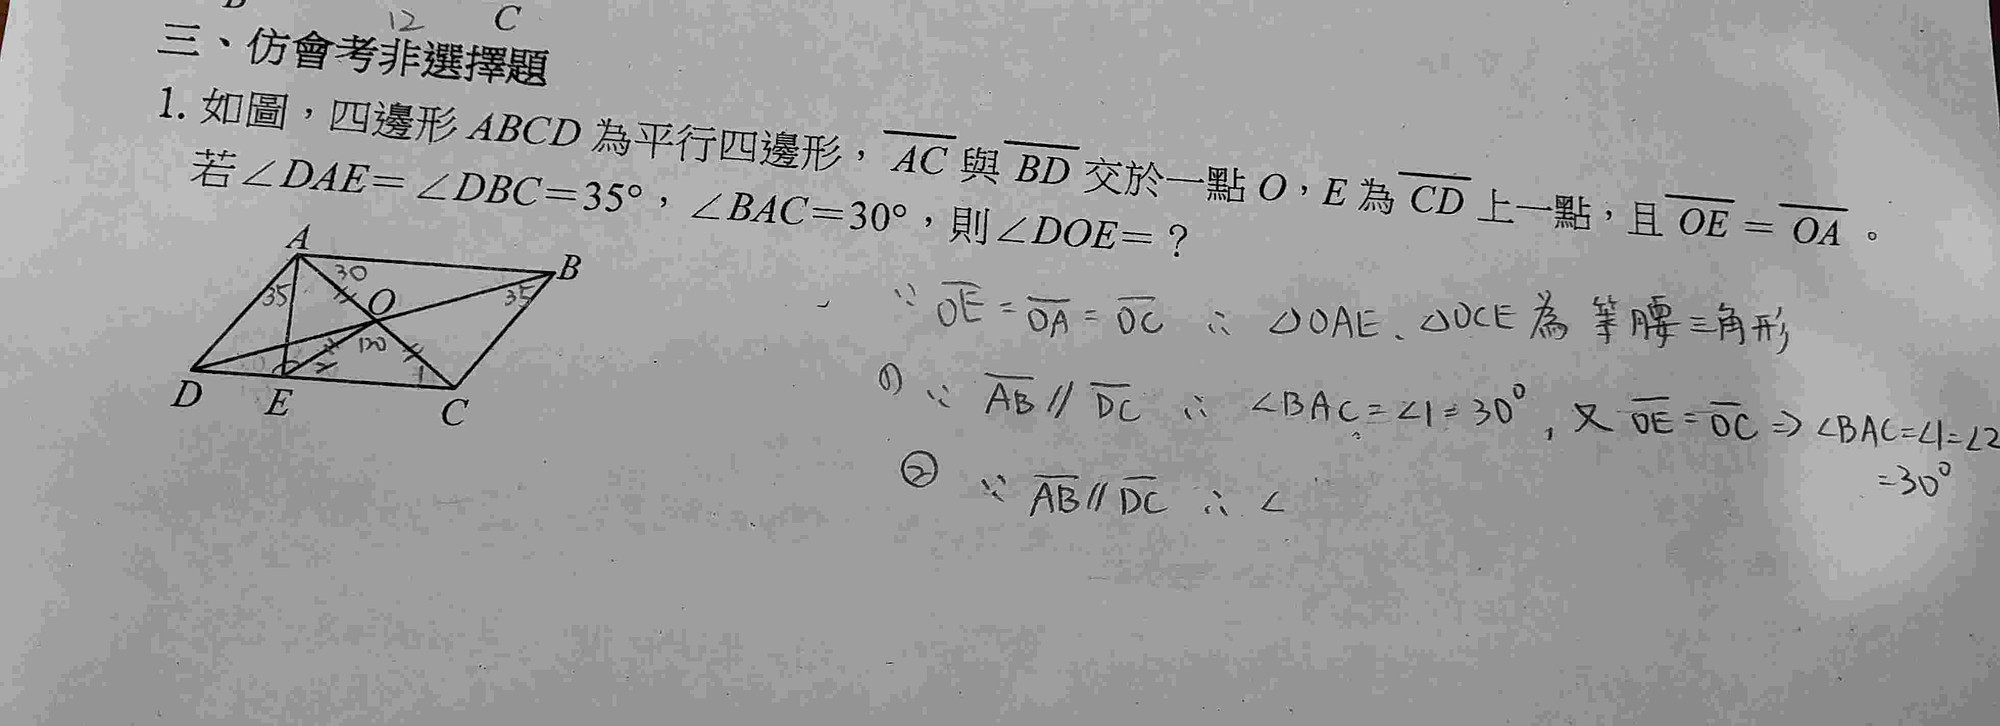 12 C
三、仿會考非選擇題
1. 如圖，四邊形 ABCD 為平行四邊形，AC 與 BD 交於一點 O，E 為 CD 上一點，且 OE = OA。
若∠DAE=∠DBC=35°，∠BAC=30°，則∠DOE=？
A
B
30
35
O
35
120
1
D
E
C
∵ OE = OA = OC ∴ △OAE、△OCE 為 等腰三角形
① ∵ AB // DC ∴ ∠BAC=∠1=30°, 又 OE = OC ⇒ ∠BAC=∠1=∠2
=30°
② ∵ AB // DC ∴ ∠